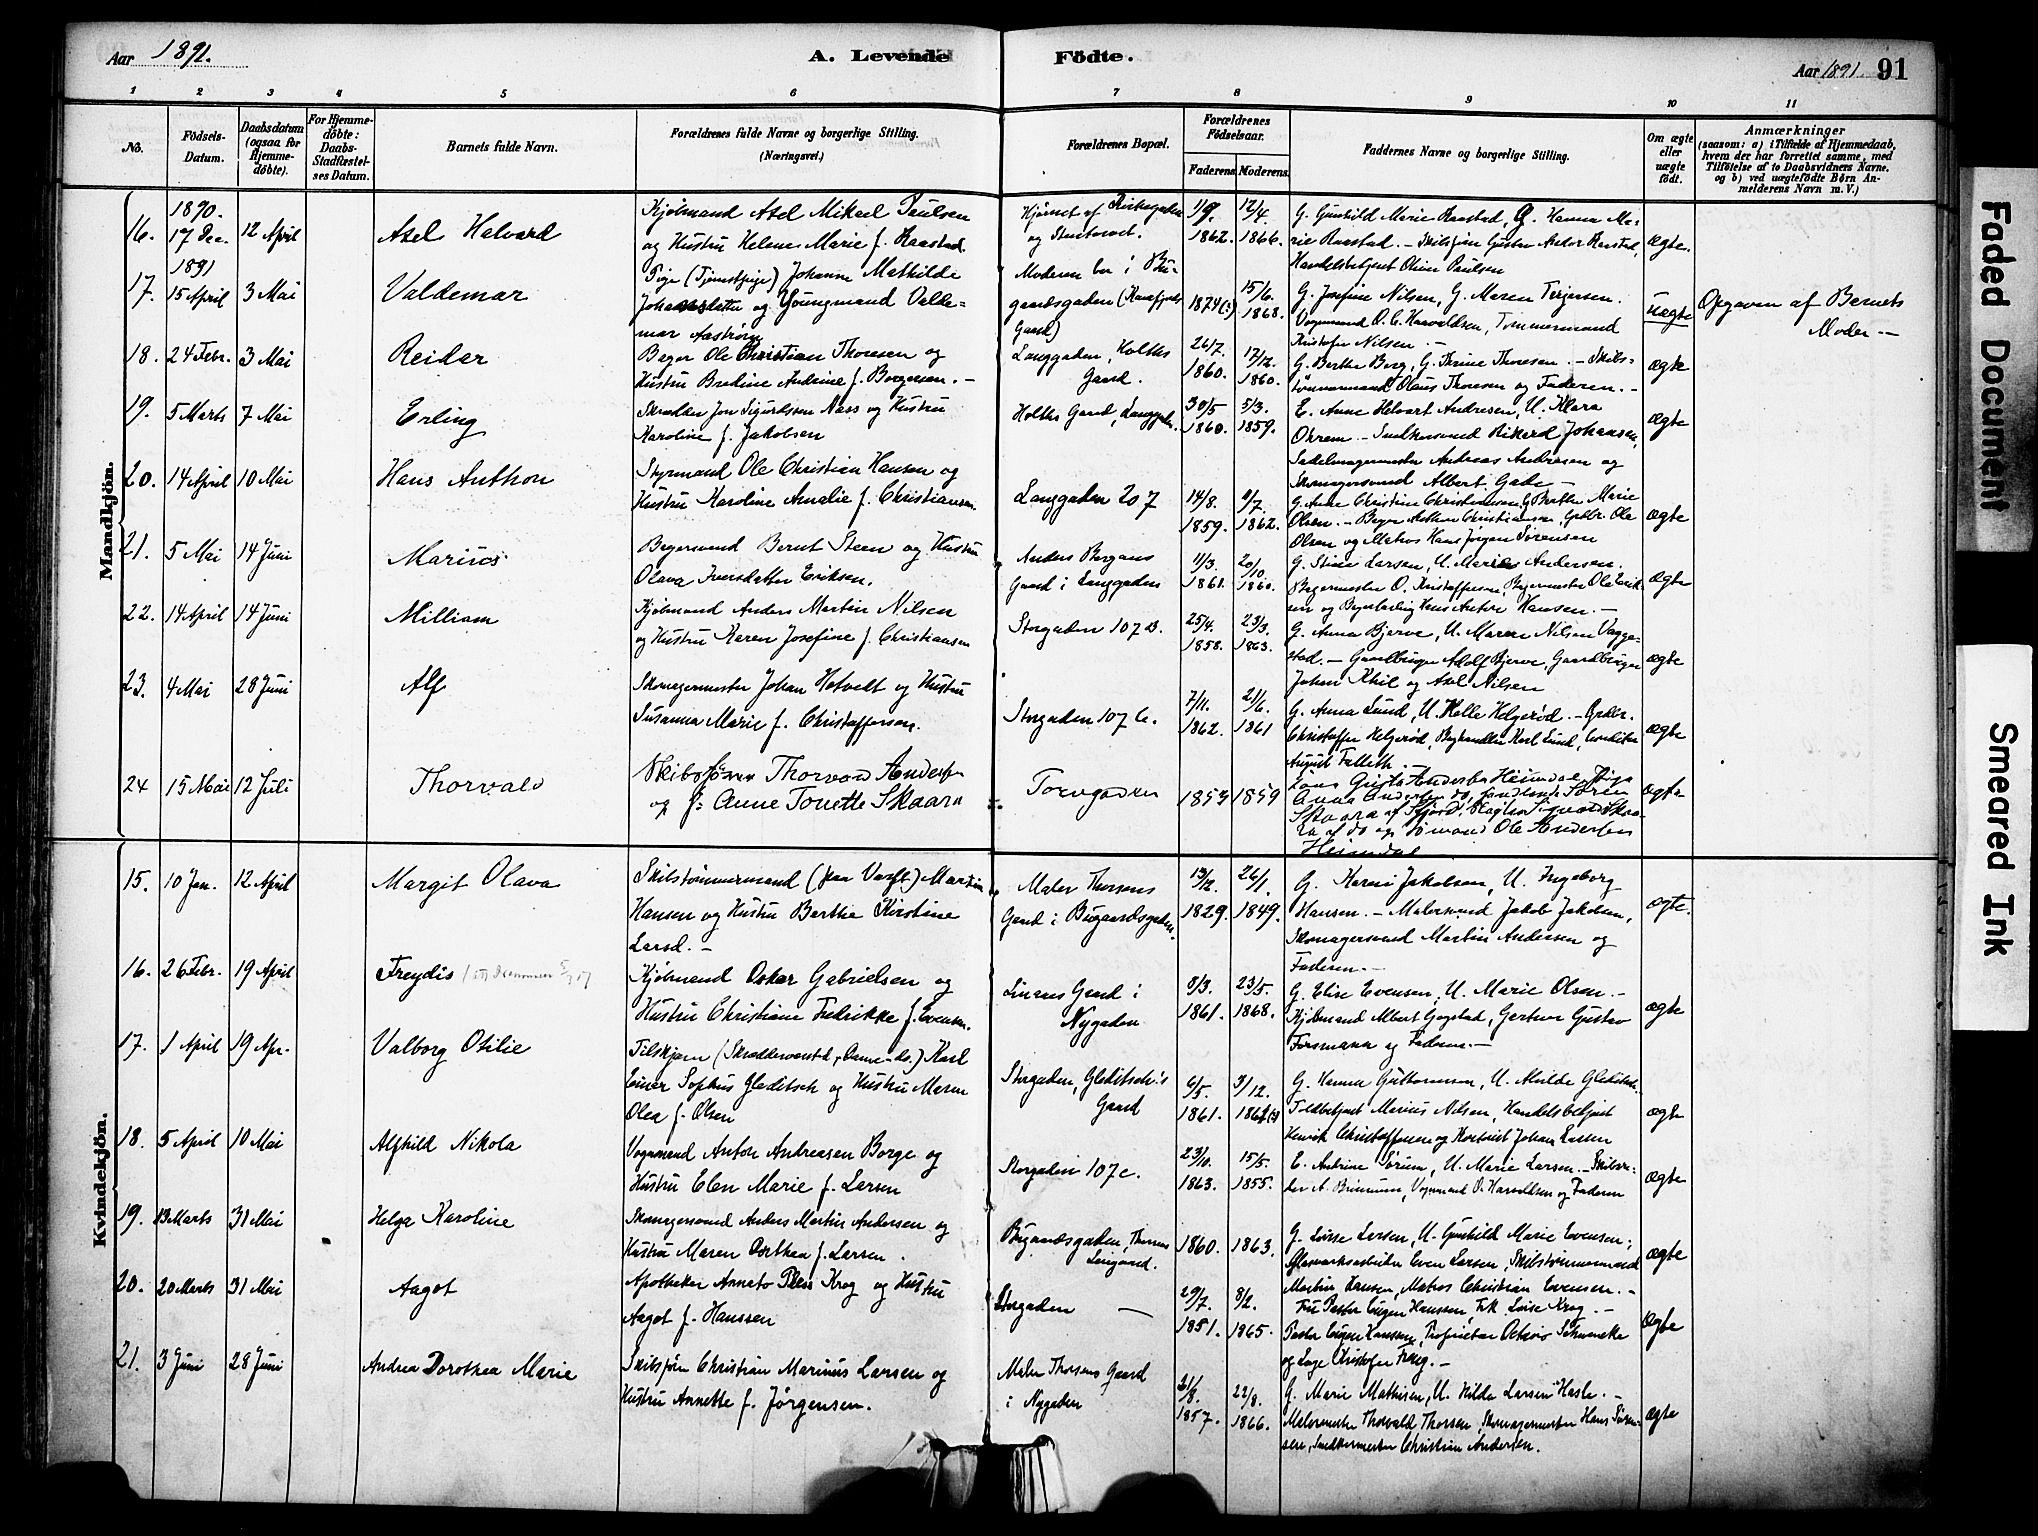 Aar 1891.
A. Levende Födte.
Aar 1891 91
1 2 3 4 5 6 7 8 9 10 11
No.
Födsels-
Datum.
Daabsdatum
(ogsaa for
Hjemme-
døbte).
For Hjemme-
døbte:
Daabs-
Stadfæstel-
ses Datum.
Barnets fulde Navn.
Forældrenes fulde Navne og borgerlige Stilling.
(Næringsvei.)
Forældrenes Bopæl.
Forældrenes
Födselsaar.
Faderens. Moderens.
Faddernes Navne og borgerlige Stilling.
Om ægte
eller
uægte
født.
Anmærkninger
(saasom: a) i Tilfælde af Hjemmedaab,
hvem der har forrettet samme, med
Tilføielse af to Daabsvidners Navne,
og b) ved uægtefødte Börn An-
melderens Navn m. V.)
Mandkjön.
16. 1890. 17 Dec. 12 April Axel Halvard
Kjøbmand Axel Mikael Paulsen
og Hustru Helene Marie f. Raastad.
Hjørnet af Kirkegaden
og Storetorvet.
11/9. 1862. 12/4. 1866.
G. Gunhild Marie Raastad, G. Hanna Ma-
rie Raastad. - Skibsfører Gustav Andor Raastad,
Handelsbetjent Olaus Paulsen
ægte.
17. 1891 15 April 3 Mai Valdemar
Pige (Tjenestpige) Johanne Mathilde
Johannesdatter og Youngmand Valde-
mar Aastrøm
Moderen bor i Bu-
gaardsgaden
Gaard)
1874(?) 15/6. 1868.
G. Josefine Nilsen, G. Maren Terjersen.
Vognmand O. C. Haraldsen, Tømmermand
Kristofer Nilsen -
uægte
Opgaven af Barnets
Moder -
18. 24 Febr. 3 Mai Reidar
Bager Ole Christian Thoresen og
Hustru Bredine Andrine f. Borgersen. -
Langgaden, Holths
Gaard.
26/7. 1860. 17/12. 1860.
G. Berthe Borg, G. Thrine Thoresen. - Skibs-
tømmermand Olaus Thoresen og Faderen. -
ægte
19. 5 Marts 7 Mai Erling
Skrædder Jon Sigurdssen Næss og Hustru
Karoline f. Jakobsen
Holths Gaard, Langgaden.
30/5 1860. 5/3. 1859.
E. Anne Helvart Andresen, U. Klara
Ohrem - Snedkersvend Rikard Johansen,
Sadelmagermester Andreas Andresen og
Skomagersvend Albert Gade -
ægte
20. 14 April 10 Mai Hans Anthon
Styrmand Ole Christian Hansen og
Hustru Karoline Amalie f. Christiansen.
Langgaden 207
14/8. 1859. 9/7. 1862.
G. Anne Christine Christiansen, G. Berthe Marie
Olsen. - Bager Anthon Christiansen, Ole
Olsen og Matros Hans Jørgen Sørensen
ægte
21. 5 Mai 14 Juni Marius
Bagersvend Bernt Steen og Hustru
Olava Iversdatter Eriksen.
Anders Bergans
Gaard i Langgaden
11/3. 1861. 20/10. 1860.
G. Stine Larsen, U. Marie Andersen.
Bagermester O. Kristoffersen, Bagermester Ole Erik-
sen og Bagerlærling Hans Anton Hansen. -
ægte
22. 14 April 14 Juni William
Kjøbmand Anders Martin Nilsen
og Hustru Karen Josefine f. Christiansen
Storgaden 107 B.
25/4. 1858. 23/3. 1863.
G. Anna Bjerve, U. Maren Nilsen Vagge-
stad. - Gaardbruger Adolf Bjerve, Gaardbruger
Johan Khil og Axel Nilsen
ægte
23. 4 Mai 28 Juni Alf
Skomagermester Johan Hotvedt og Hustru
Susanna Marie f. Christoffersen.
Storgaden 107 C.
7/11. 1862. 21/6. 1861
G. Anna Lund, U. Helle Helgerød. - Grdbr.
Christoffer Helgerød, Boghandler Karl Lund,
August Falleth. -
ægte
24 15 Mai 12 Juli Thorvald
Skibsfører Thorvald Anders.
og f: Anne Tonette Skaara
Torvgaden
1859 1859
Anna Andersen do, Søren
Skaara af
ra af do og Sømand Ole Andersen
Heimdal
ægte
Kvindekjön.
15. 10 Jan. 12 April Margit Olava
Skibstømmermand (paa Værft.) Martin
Hansen og Hustru Berthe Kirstine
Larsd. -
Maler Thorsens
Gaard i Bugaardsgaden.
13/12. 1829. 26/1. 1849.
G. Karen Jakobsen, U. Ingeborg
Hansen. - Malersvend Jakob Jakobsen,
Skomagersvend Martin Andersen og
Faderen. -
ægte.
16. 26 Febr. 19 April Freydis
Kjøbmand Oskar Gabrielsen og
Hustru Christiane Fredrikke f. Evensen.
Linaas Gaard i
Nygaden
9/3. 1861. 23/5. 1868.
G. Elise Evensen, U. Marie Olsen. -
Kjøbmand Albert Gogstad, Gartner Gustav
Forsmann og Faderen. -
ægte
17. 1 April 19 Apr. Valborg Otilie
Tilskjærer (Skrædersvend, Dame-do.) Karl
Einer Sophus Gleditsch og Hustru Maren
Olea f. Olsen
Storgaden, Gleditsch's
Gaard
6/5. 1861. 3/12. 1861(?)
G. Hanna Guttormsen, U. Mulde Gleditsch.
Toldbetjent Marius Nilsen, Handelsbetjent
Henrik Christoffersen og Johan Larsen
ægte
18. 5 April 10 Mai Alfhild Nikola
Vognmand Anton Andreasen Borge og
Hustru Elen Marie f. Larsen
Storgaden 107 c.
23/10. 1863. 15/5. 1855.
E. Andrine Sørum, U. Marie Larsen. - Skibsre-
der A. Brinumn, Vognmand O. Haraldsen og Faderen
ægte
19. 13 Marts 31 Mai Helga Karoline
Skomagersvend Anders Martin Andersen og
Hustru Maren Dorthea f. Larsen.
Bugaardsgaden, Thorsens
1860. 1863.
G. Lovise Larsen, U. Gunhild Marie Evensen;
Glasværksarbeider Even Larsen, Skibstømmermand
Martin Hansen, Matros Christian Evensen. -
ægte
20. 20 Marts 31 Mai Aagot
Apotheker Annæto Pless Krog og Hustru
Aagot f. Hanssen
Storgaden -
29/7. 1851. 8/2. 1865.
Fru Pastor Eugen Hanssen, Frk Lovise Krog. -
Pastor Eugen Hanssen, Proprietær Octavio Schwencke
og Læge Kristofer Krog. -
Ægte
21. 3 Juni 28 Juni Andrea Dorothea Marie
Skibsfører Christian Marinus Larsen og
Hustru Annette f. Jørgensen.
Maler Thorsens Gaard
i Nygaden
21/8. 1857. 22/8. 1866.
G. Marie Mathisen, U. Hilda Larsen Hasle. -
Malermester Thorvald Thorsen, Skomagermester Hans Sørens-
sen, Snedkermester Christian Andersen.
ægte
Faded Document
Smeared Ink